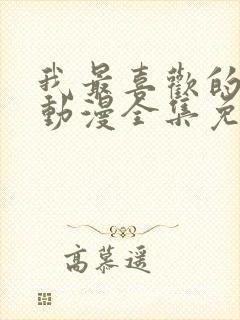 我最喜歡的
動漫全集免
高慕遥